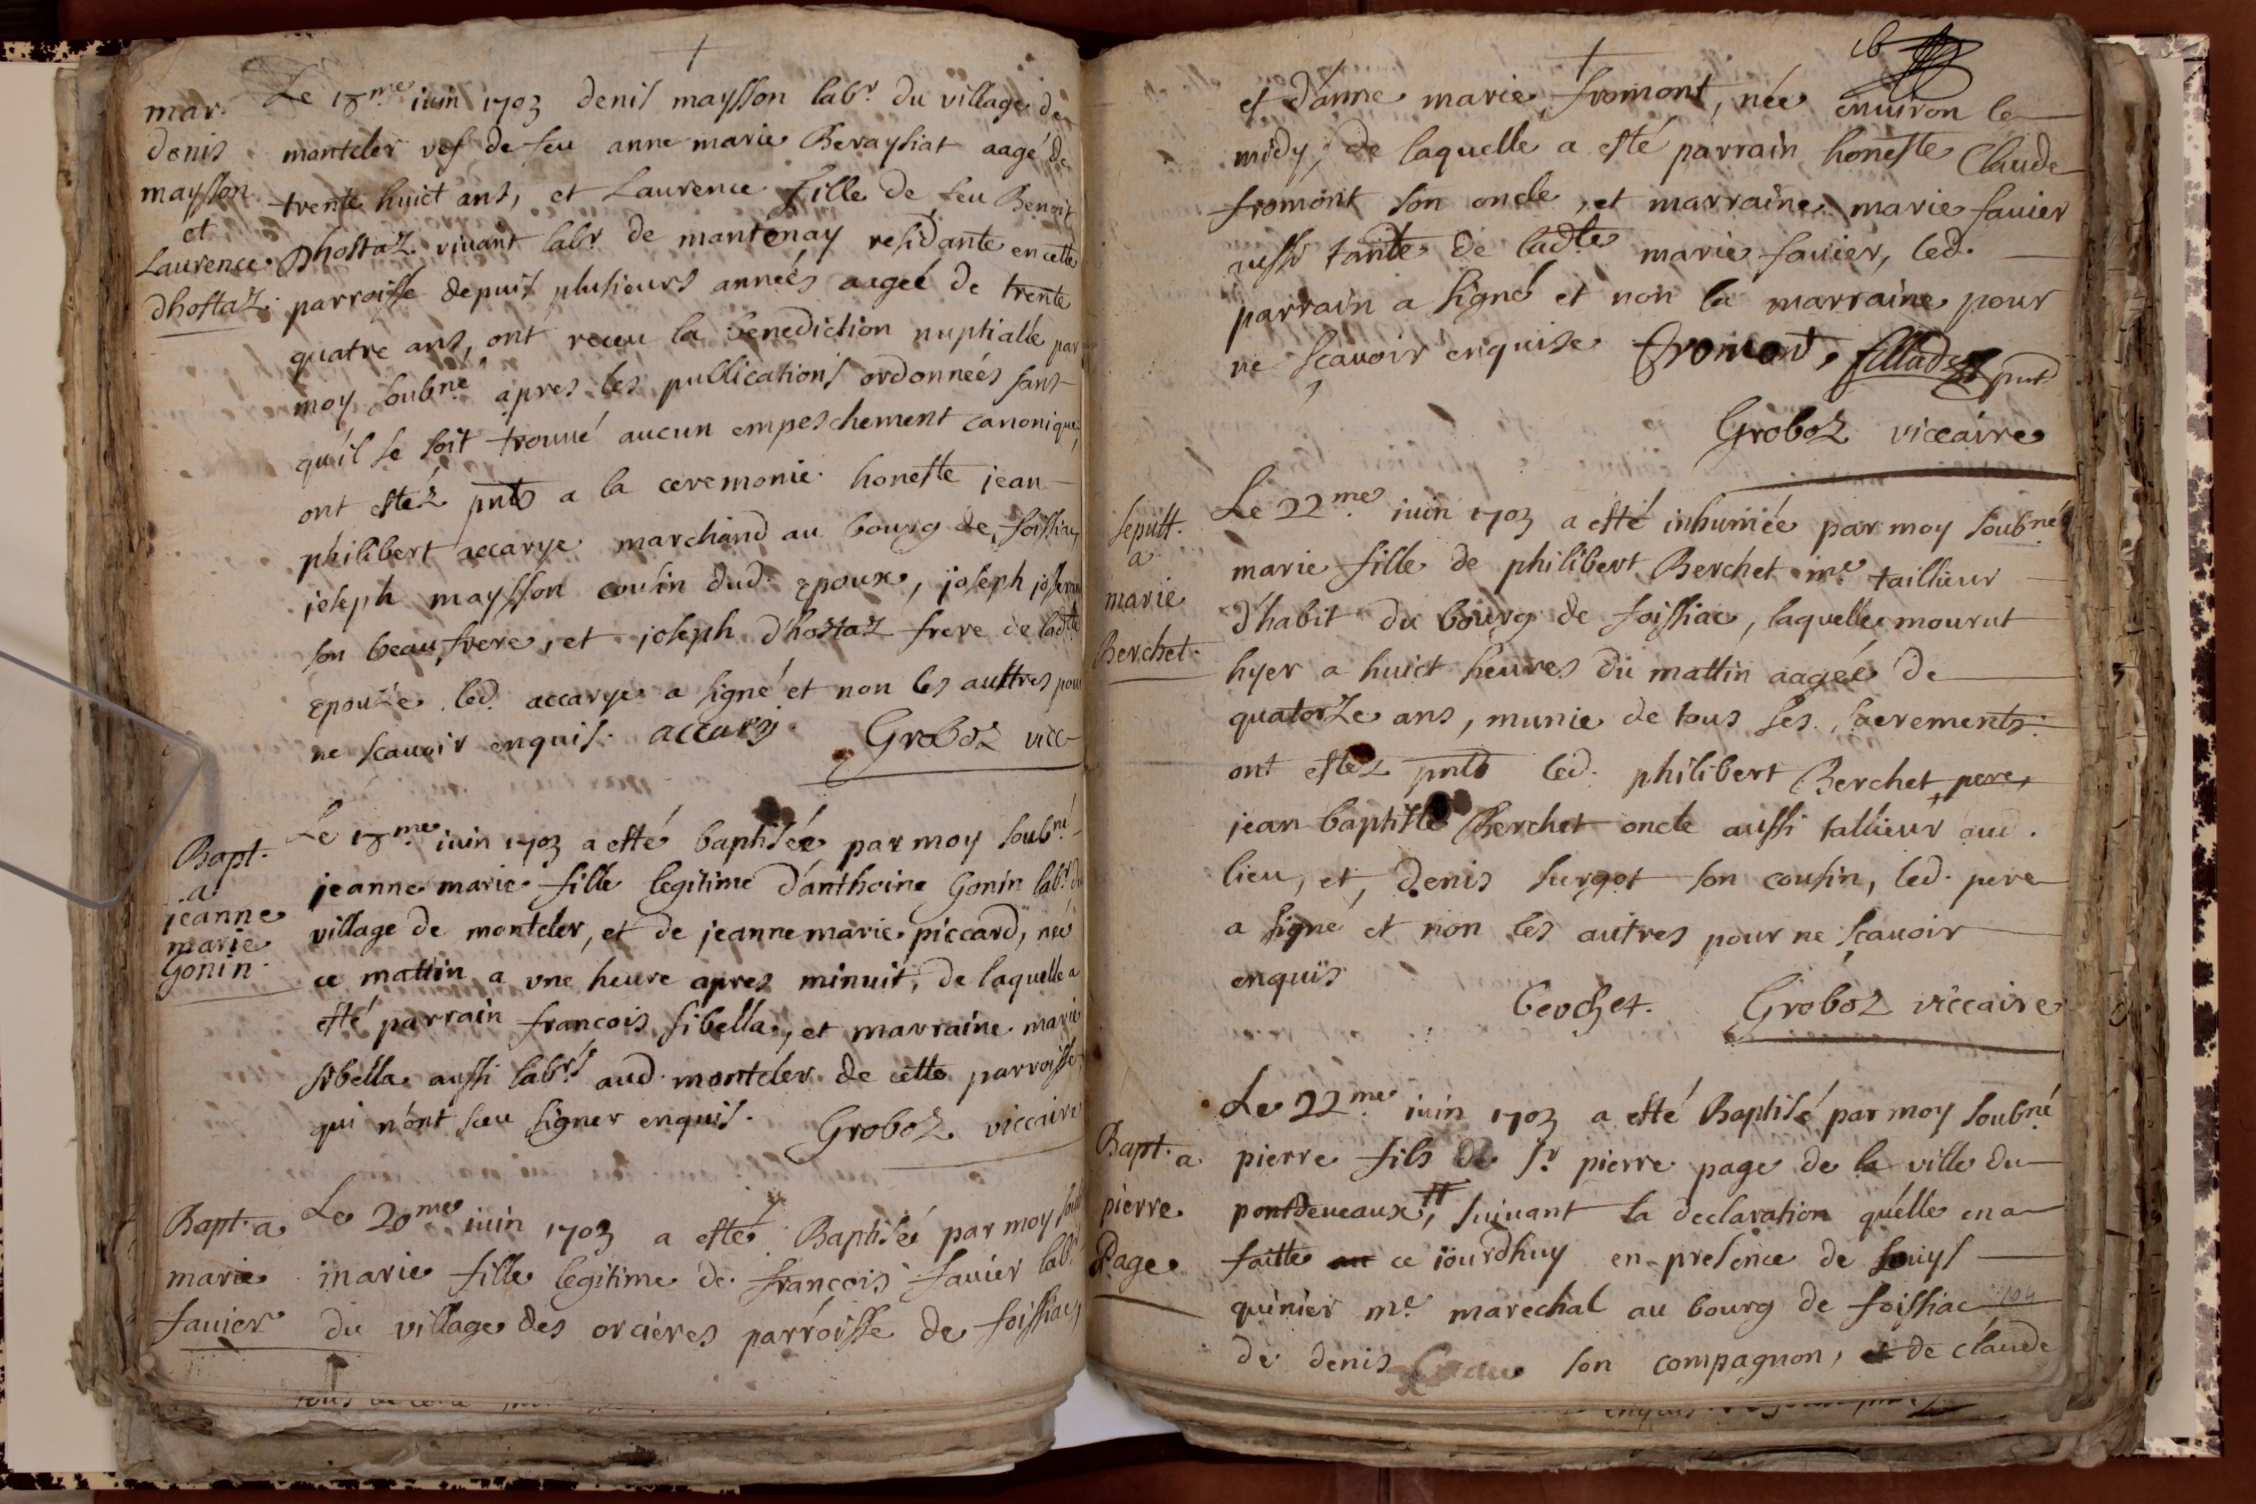 mar.
denis
maysson
et
Laurence
Dhostaz.
Le 18me iuin 1703 denis maysson labr du village de
montcler vef de feu anne marie Beraysiat aagé de
trente huict ans, et Laurence fille de feu Benoit
Dhostaz vivant labr de mantenay residante en cette
parroisse depuis plusieurs années aageé de trente
quatre ans, ont receu la benediction nuptialle par
moy soubné apres les publications ordonneés sans
qu'il se soit trouué aucun empeschement canonique,
ont estéz pnts a la ceremonie honeste jean
philibert accarye marchand au bourg de foissiac,
joseph maysson cousin dud. epoux, joseph
son beaufrere, et joseph d'hostaz frere de ladte
epouze led. accarye a signé et non les auttres pour
ne scauoir enquis. accary. Groboz vicc
Bapt.
a
jeanne
marie
Gonin.
Le 18me iuin 1703 a esté baptisée par moy soubné
jeanne marie fille legitime d'anthoine Gonin labr du
village de montcler, et de jeanne marie piccard, neé
ce mattin a vne heure apres minuit, de laquelle a
esté parrain francois sibella, et marraine marie
sibella aussi labrs aud. montcler de cette parroisse,
qui n'ont sceu signer enquis. Groboz viccaire
Bapt. a
marie
fauier
Le 20me iuin 1703 a esté Baptisé par moy
marie fille legitime de francois fauier labr
du village des orcieres parroisse de foissiac,
16
et d'anne marie fromont, née enuiron le
midy, de laquelle a esté parrain honeste Claude
fromont son oncle, et marraine marie fauier
aussi tante de ladte marie fauier, led.
parrain a signé et non la marraine pour
ne scauoir enquise Fromont, pnt
Groboz viccaire
sepult.
a
marie
Berchet.
Le 22me iuin 1703 a esté inhumée par moy soubné
marie fille de philibert Berchet me taillieur
d'habit du bourg de foissiac, laquelle mourut
hyer a huict heures du mattin aageé de
quatorze ans, munie de tous ses sacrements.
ont estéz pnts led. philibert Berchet pere,
jean baptiste Berchet oncle aussi tallieur aud.
lieu, et denis surgot son cousin, led. pere
a signé et non les autres pour ne scauoir
enquis
berchet. Groboz viccaire
Bapt. a
pierre
Page
Le 22me iuin 1703 a esté Baptisé par moy soubné
pierre fils de sr pierre page de la ville du
pontdeueaux, suiuant la declaration qu'elle en a
faitte ce iourdhuy en presence de Louys
quinier me marechal au bourg de foissiac
de denis son compagnon, de claude